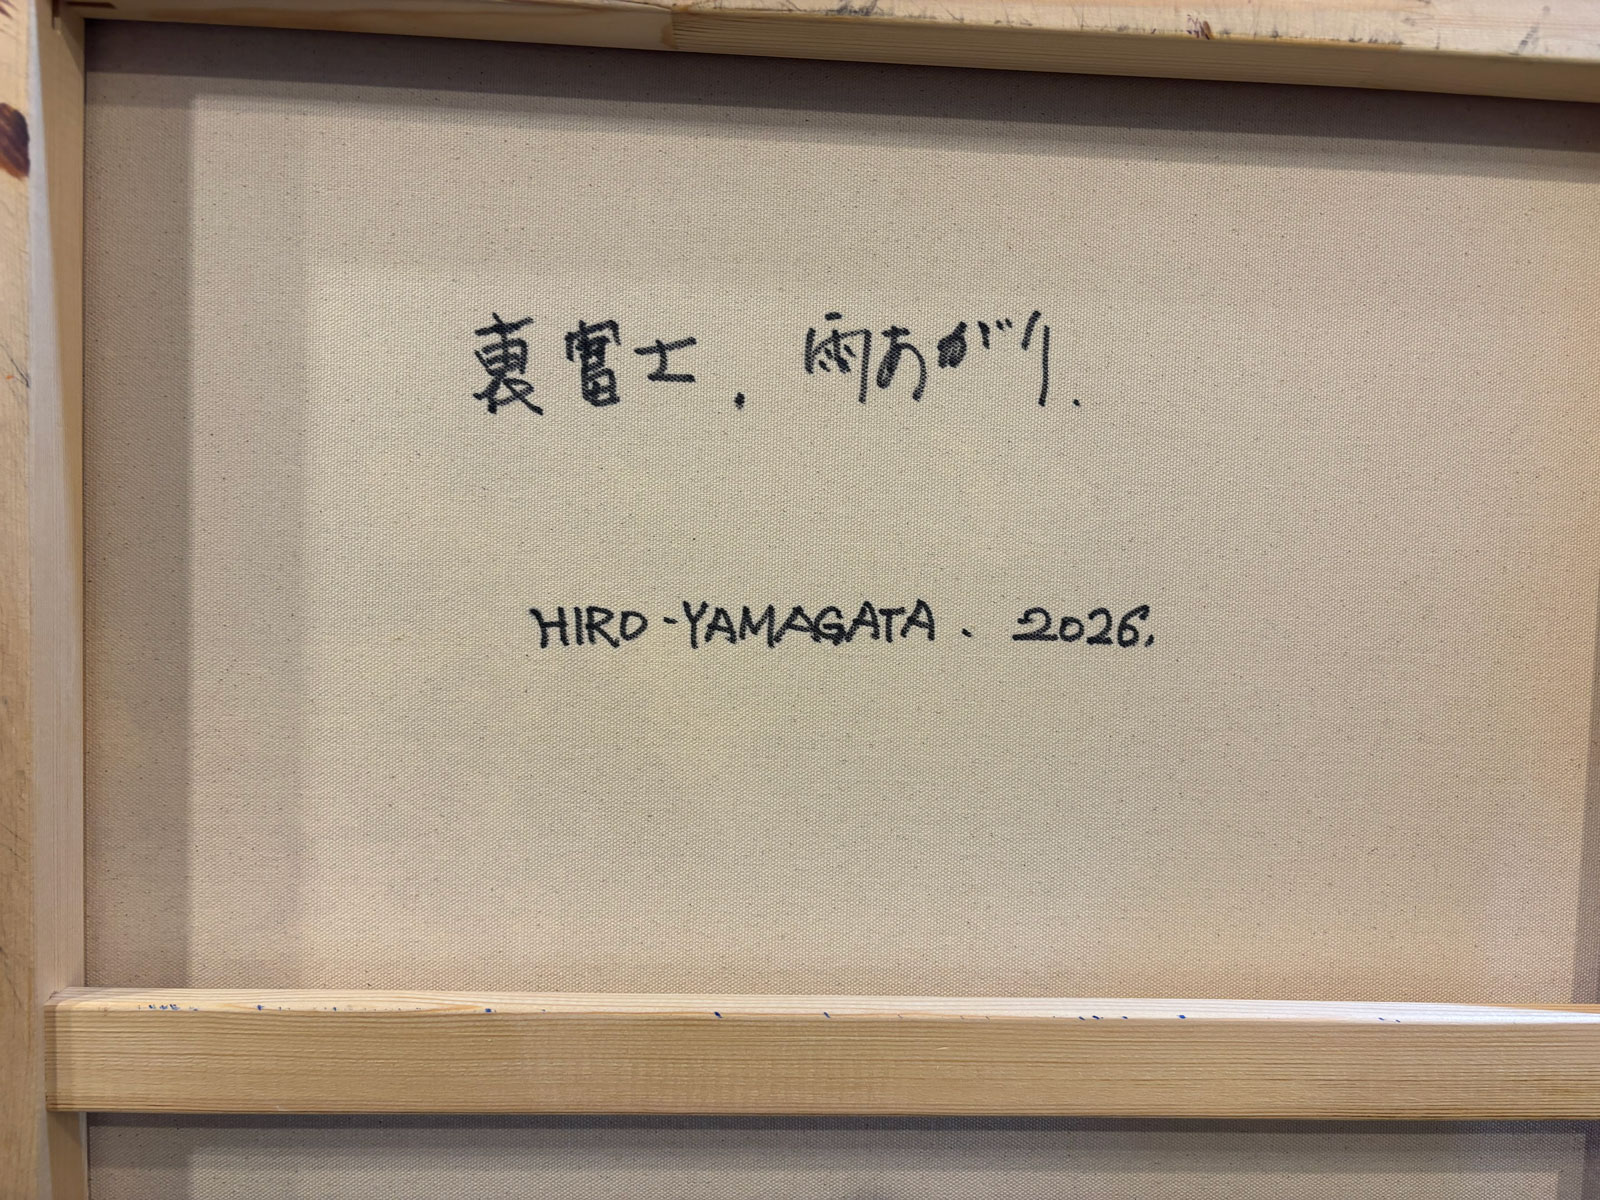 裏富士. 雨あがり.
HIRO-YAMAGATA. 2026.